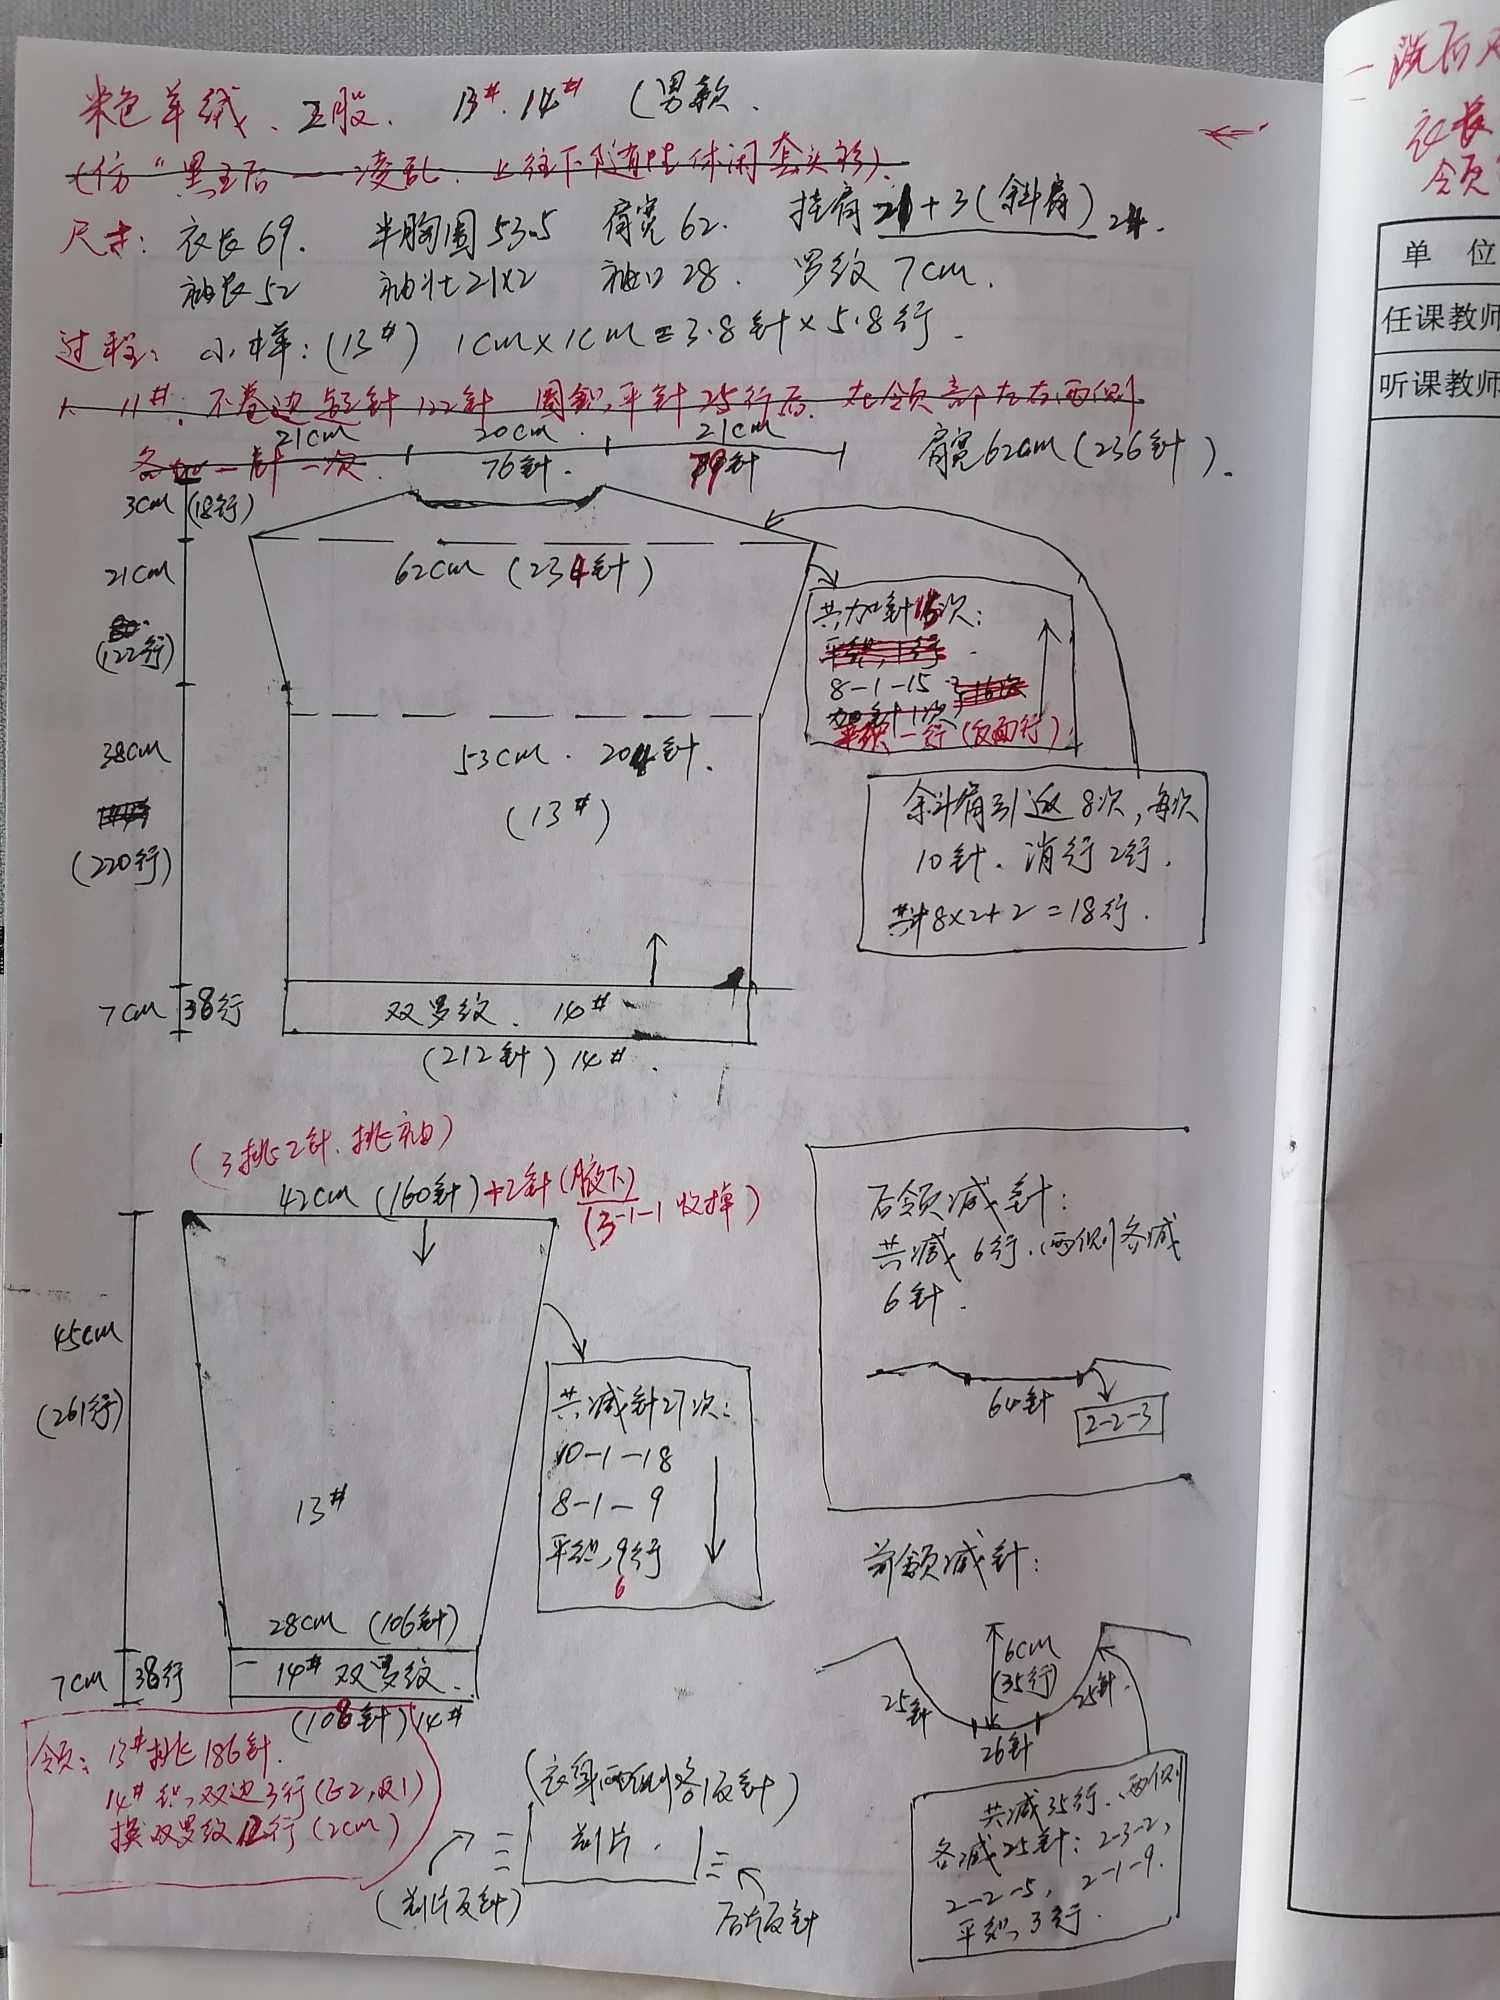 米色羊绒、2股. 13# 14# (男款.
(仿"黑王后——凌乱.上往下随性休闲套头衫).
尺寸: 衣长69. 半胸围53.5 肩宽62. 挂肩21+3(斜肩) 24.
袖长52 袖壮21×2 袖口28. 罗纹7cm.
过程: 小样:(13#) 1cm×1cm=3.8针×5.8行.
1、11#: 不卷边起针122针 圈织,平针25行后.在领部左右两侧
各加一针一次.
21cm 20cm. 21cm
76针. 79针 肩宽62cm(236针).
3cm (18行)
21cm
(122行)
62cm (234针)
共加针15次:
平织,1行
8-1-15
加针1次
一行(反面行)
38cm
(220行)
53cm. 204针.
(13#)
斜肩引返8次,每次
10针.消行2行.
共计8×2+2=18行.
7cm 38行
双罗纹. 14#
(212针) 14#.
(3挑2针.挑袖)
42cm (160针)+2针(腋下)
(3-1-1收掉)
45cm
(261行)
13#
共减针27次:
10-1-18
8-1-9
平织,9行
6
28cm (106针)
7cm 38行
14# 双罗纹.
(108针) 14#
领: 13#挑186针.
14#织,双边3行(正2,反1)
换双罗纹12行(2cm)
(衣身两侧各1反针)
前片.
(前片反针)
后片反针
后领减针:
共减6行.两侧各减
6针.
64针
2-2-3
前领减针:
6cm
(35行)
25针
25针.
26针
共减35行.两侧
各减25针: 2-3-2,
2-2-5, 2-1-9.
平织,3行.
一洗后
衣长
领
单 位
任课教师
听课教师